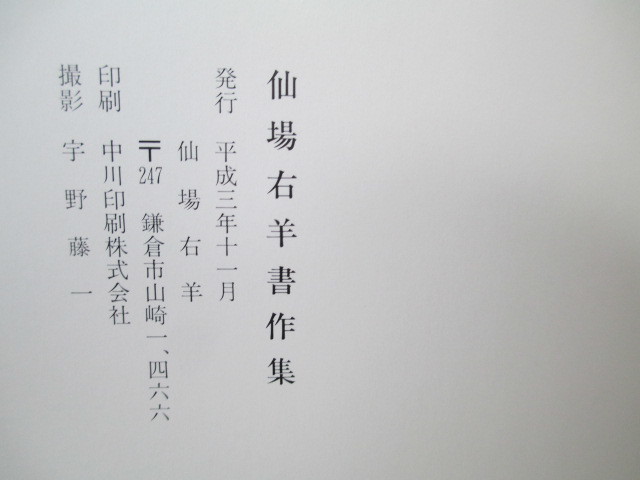 仙場右羊書作集
発行 平成三年十一月
仙場右羊
〒247 鎌倉市山崎一、四六六
印刷 中川印刷株式会社
撮影 宇野藤一